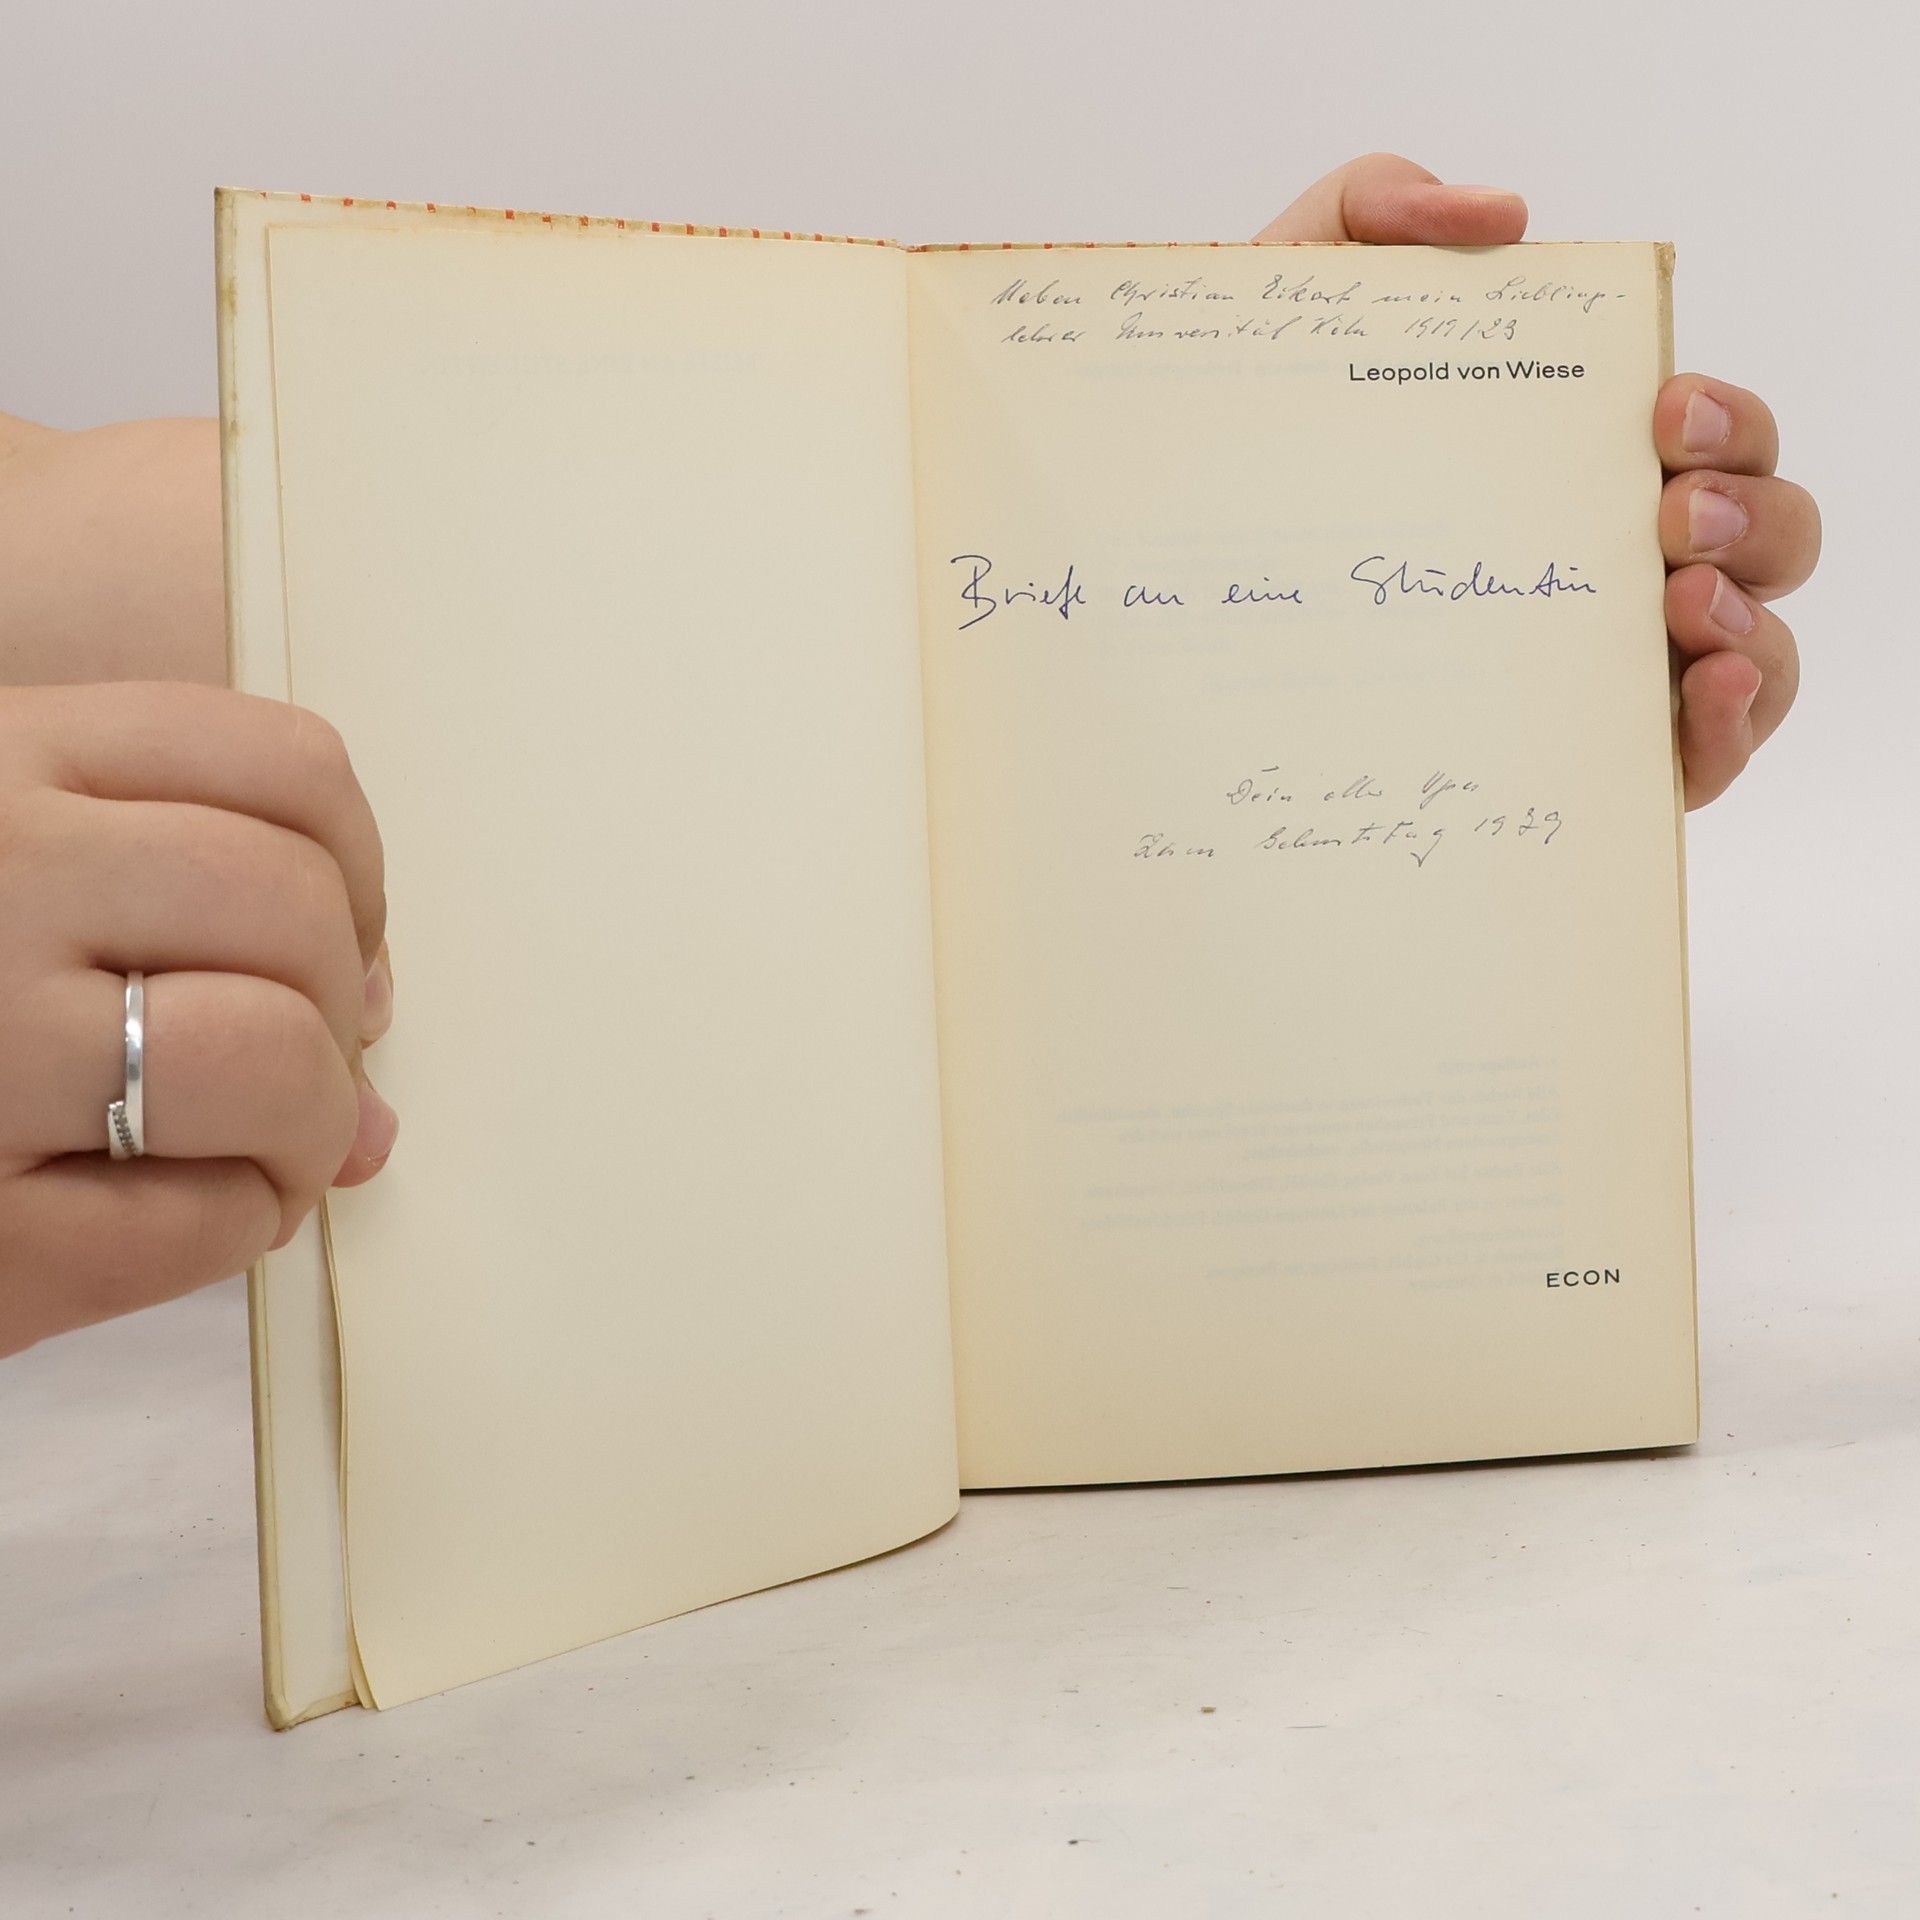 Neben Christian Eckert mein Lieblings-
lehrer Universität Köln 1919/23
Leopold von Wiese
Briefe an eine Studentin
Dein alter Opa
Zum Geburtstag 1979
ECON